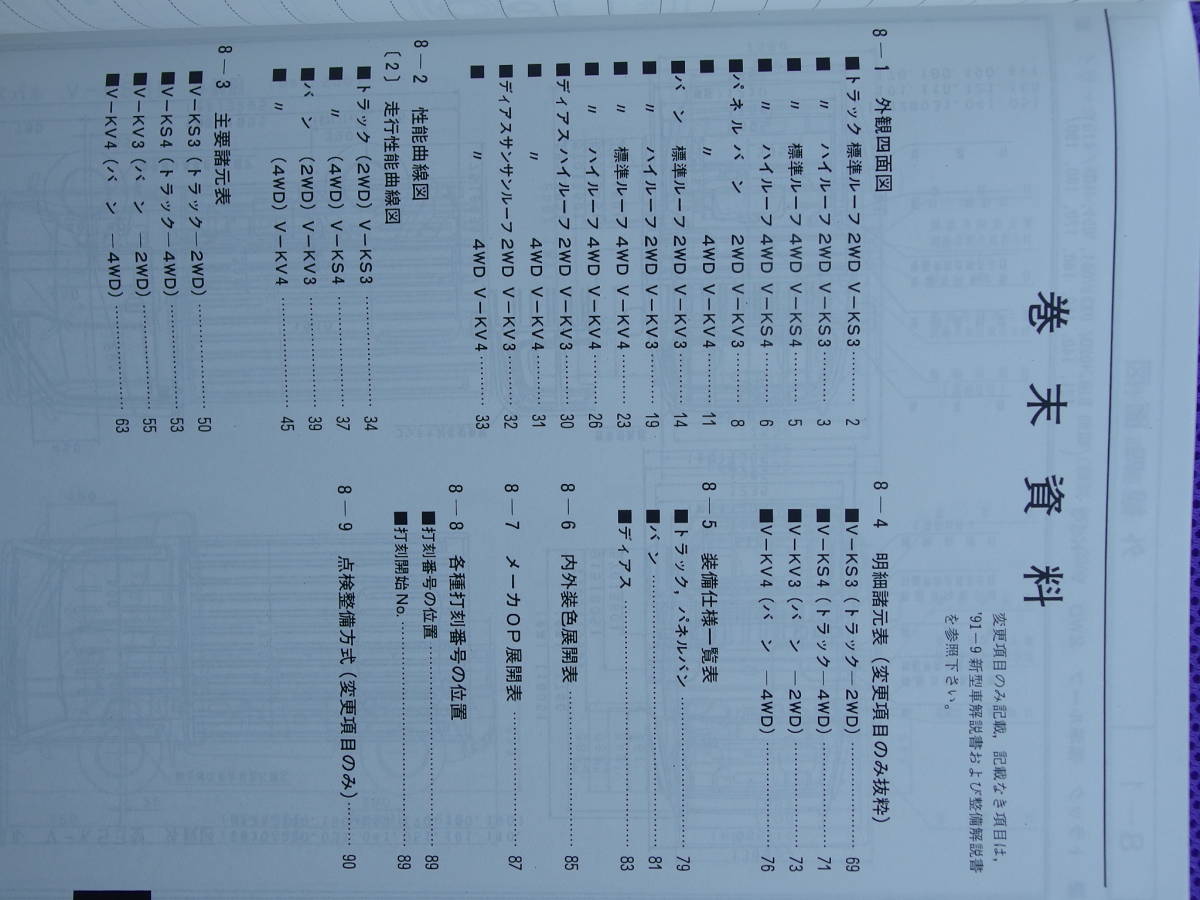 巻末資料
変更項目のみ記載,記載なき項目は,
'91-9新型車解説書および整備解説書
を参照下さい。
8―1 外観四面図
■トラック 標準ルーフ 2WD V-KS3……… 2
■ 〃 ハイルーフ 2WD V-KS3……… 3
■ 〃 標準ルーフ 4WD V-KS4……… 5
■ 〃 ハイルーフ 4WD V-KS4……… 6
■パネルバン 2WD V-KV3……… 8
■ 〃 4WD V-KV4……… 11
■バン 標準ルーフ 2WD V-KV3……… 14
■ 〃 ハイルーフ 2WD V-KV3……… 19
■ 〃 標準ルーフ 4WD V-KV4……… 23
■ 〃 ハイルーフ 4WD V-KV4……… 26
■ディアスハイルーフ 2WD V-KV3……… 30
■ 〃 4WD V-KV4……… 31
■ディアスサンサンルーフ 2WD V-KV3……… 32
■ 〃 4WD V-KV4……… 33
8―2 性能曲線図
〔2〕走行性能曲線図
■トラック(2WD)V-KS3……… 34
■ 〃 (4WD)V-KS4……… 37
■バン(2WD)V-KV3……… 39
■ 〃 (4WD)V-KV4……… 45
8―3 主要諸元表
■V-KS3(トラック―2WD)……… 50
■V-KS4(トラック―4WD)……… 53
■V-KV3(バン―2WD)……… 55
■V-KV4(バン―4WD)……… 63
8―4 明細諸元表(変更項目のみ抜粋)
■V-KS3(トラック―2WD)……… 69
■V-KS4(トラック―4WD)……… 71
■V-KV3(バン―2WD)……… 73
■V-KV4(バン―4WD)……… 76
8―5 装備仕様一覧表
■トラック,パネルバン……… 79
■バン……… 81
■ディアス……… 83
8―6 内外装色展開表……… 85
8―7 メーカOP展開表……… 87
8―8 各種打刻番号の位置
■打刻番号の位置……… 89
■打刻開始No.……… 89
8―9 点検整備方式(変更項目のみ)……… 90